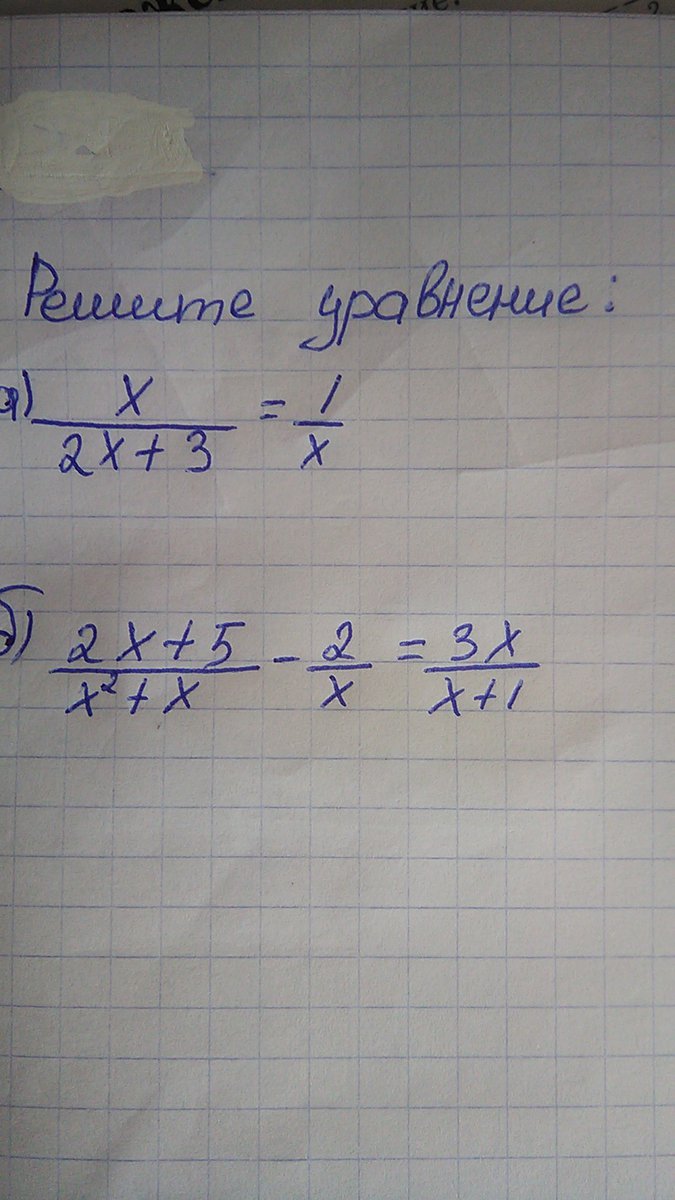 Решите уравнение:
а) x/(2x+3) = 1/x
б) (2x+5)/(x²+x) - 2/x = 3x/(x+1)